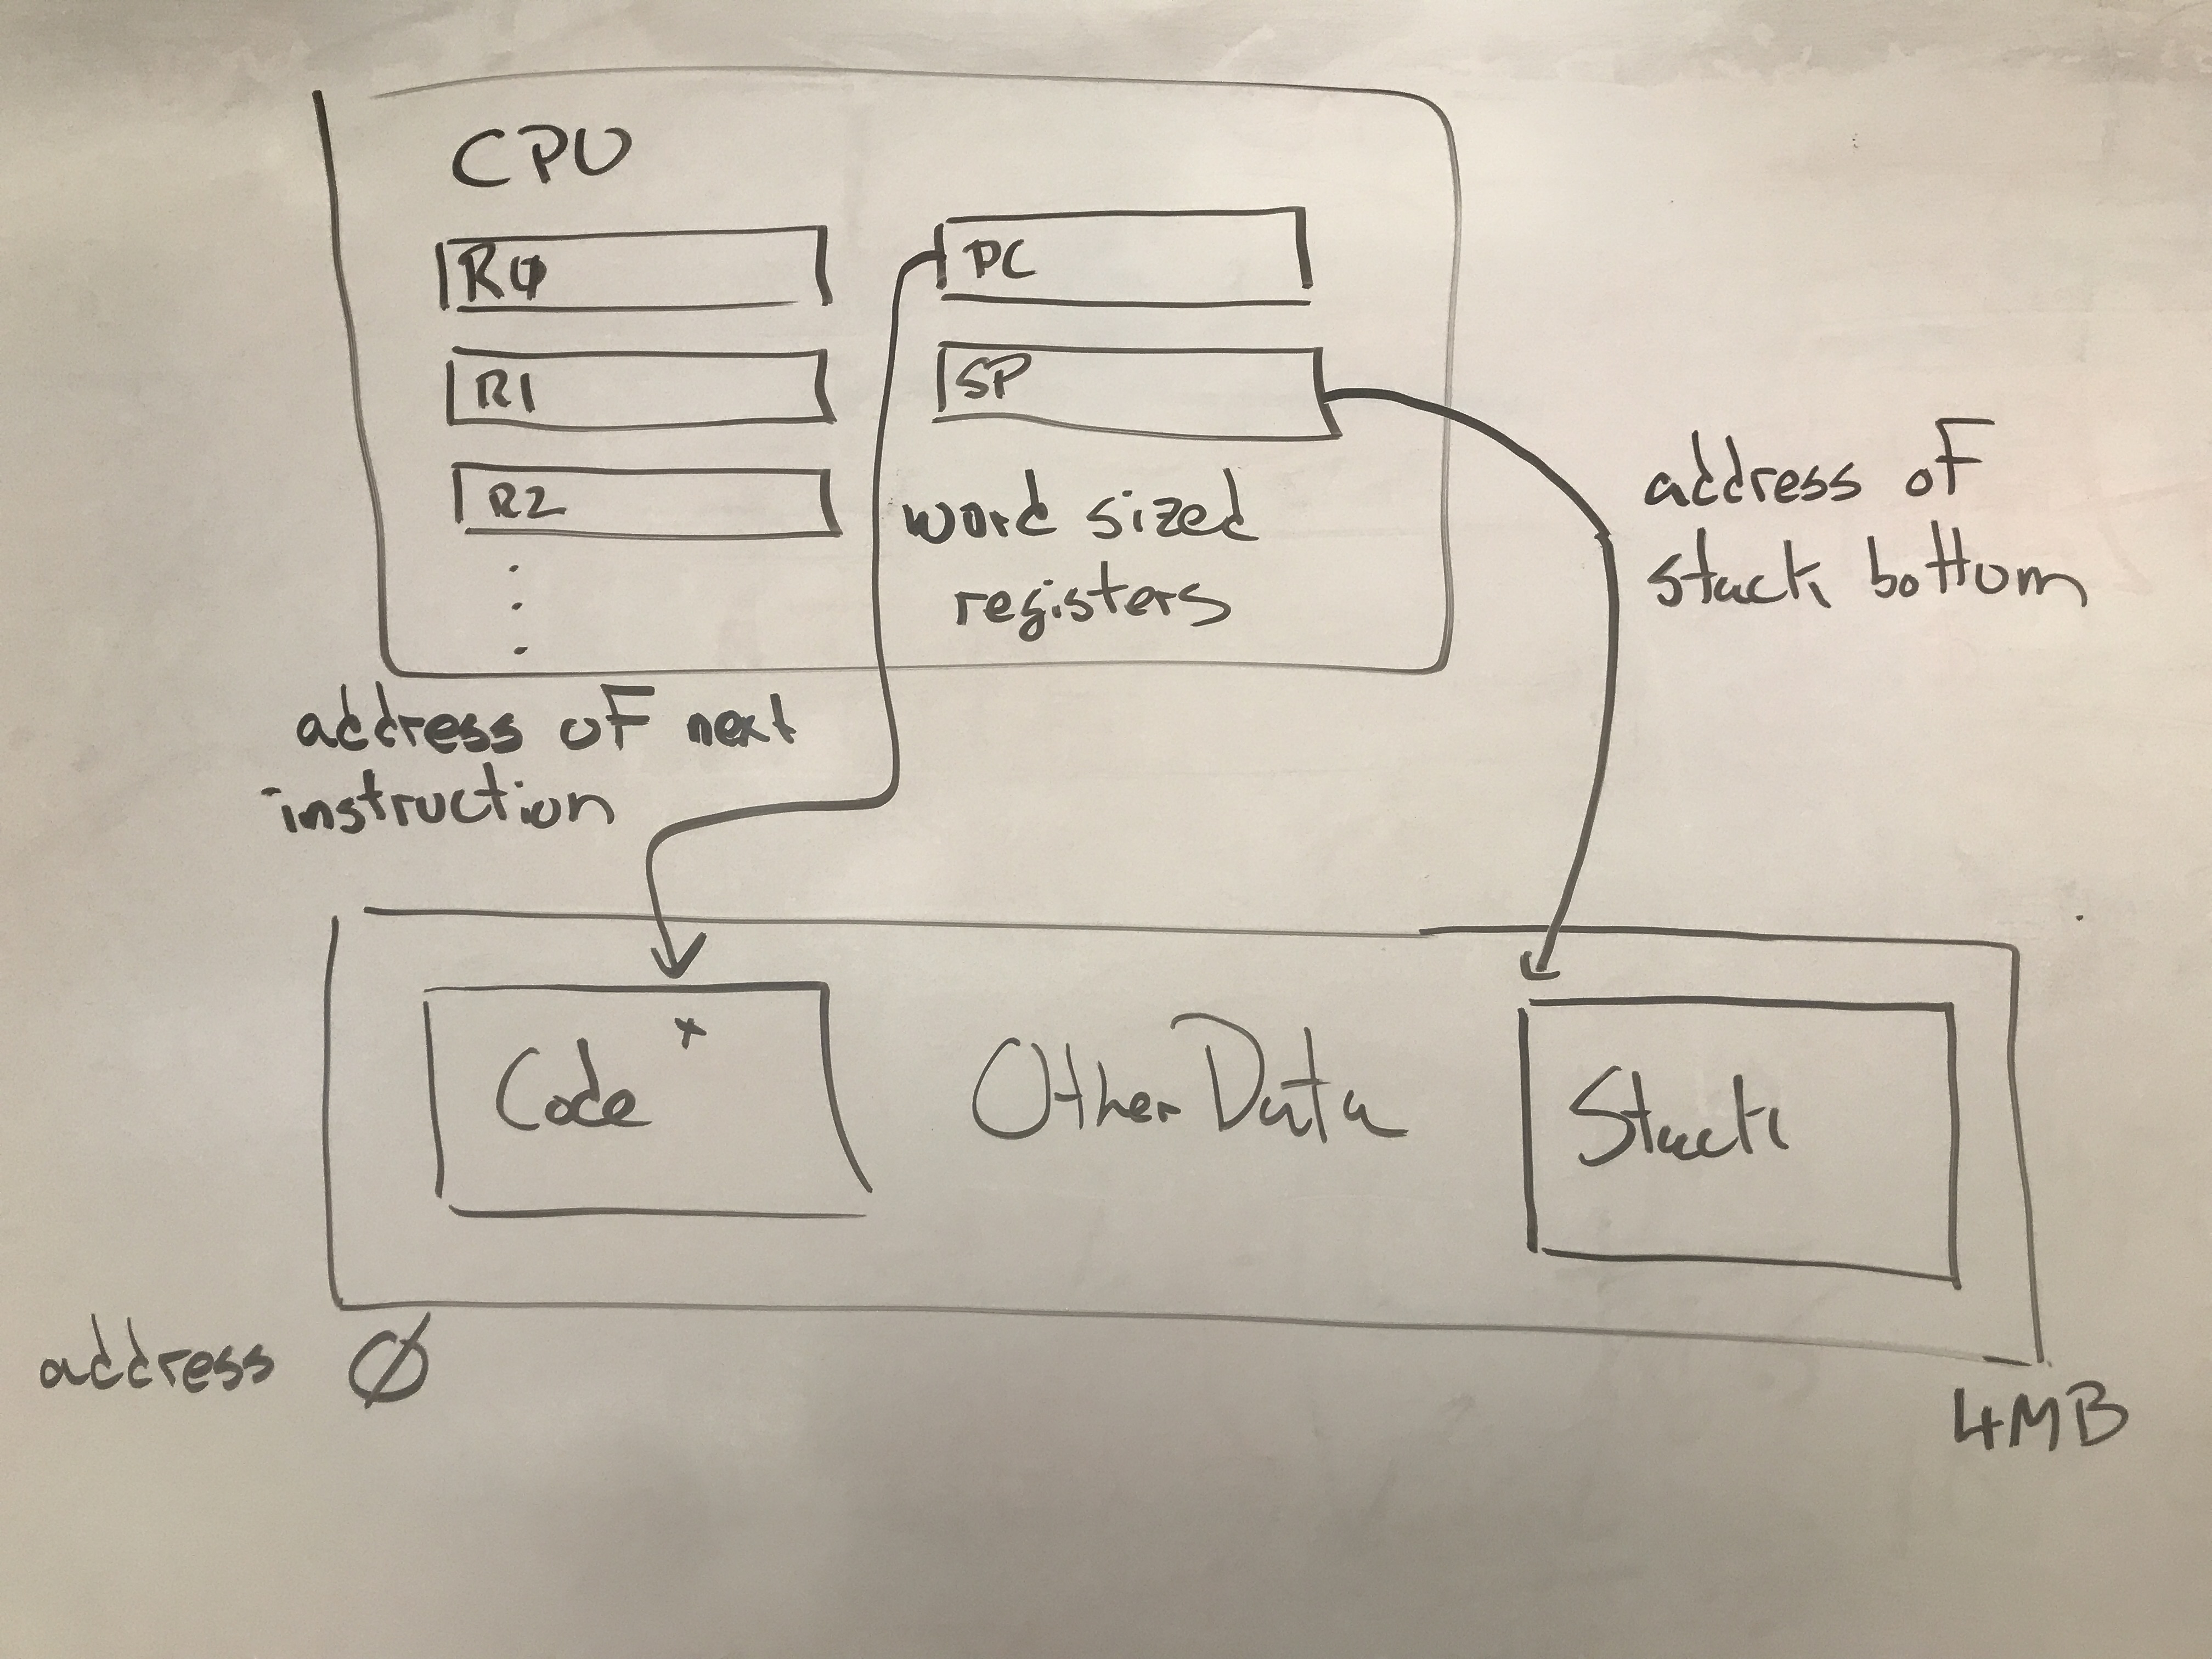 CPU
RØ
PC
R1
SP
R2
word sized
registers
address of
stack bottom
address of next
instruction
Code
x
Other Data
Stack
address Ø
4MB